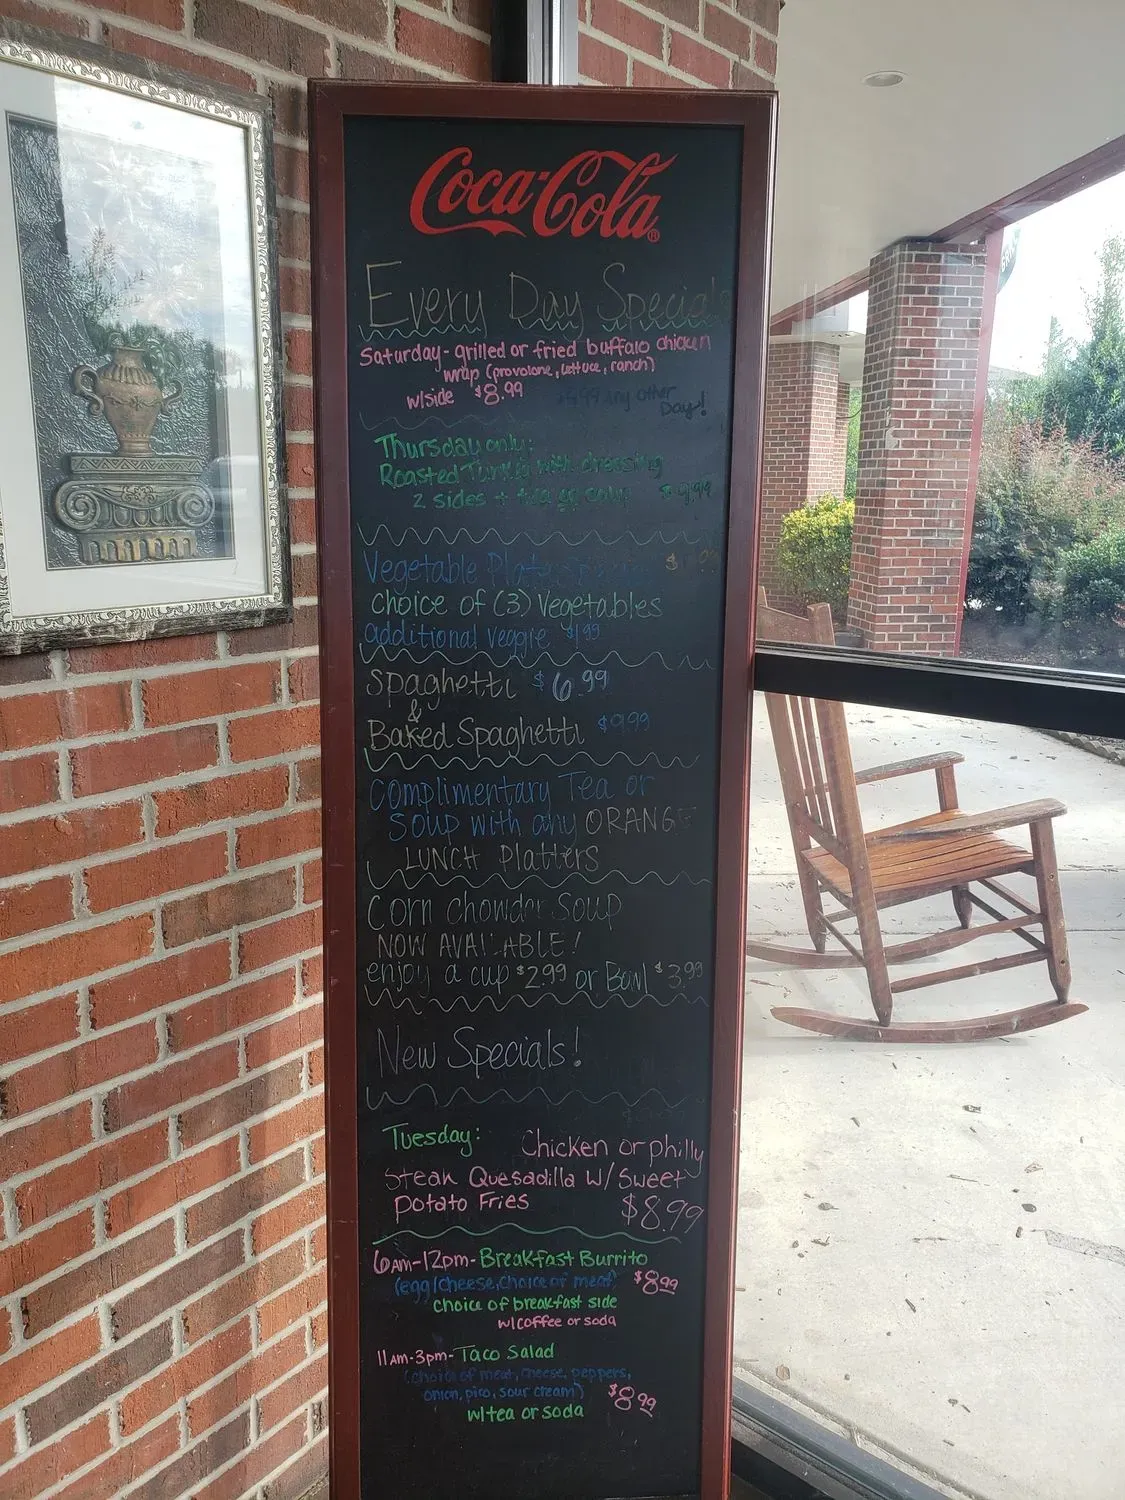 Coca-Cola
Every Day Specials
Saturday- grilled or fried buffalo chicken
wrap (provolone, lettuce, ranch)
w/side $8.99 any other
Day!
Thursday only:
Roasted Turkey with dressing
2 sides + tea or soup $9.99
Vegetable Plate
choice of (3) Vegetables
additional veggie $1.99
Spaghetti $6.99
&
Baked Spaghetti $9.99
Complimentary Tea or
Soup with any ORANGE
LUNCH Platters
Corn chowder Soup
NOW AVAILABLE!
enjoy a cup $2.99 or Bowl $3.99
New Specials!
Tuesday: Chicken or philly
Steak Quesadilla w/ Sweet
Potato Fries $8.99
6AM-12pm- Breakfast Burrito
(egg/cheese, choice of meat) $8.99
choice of breakfast side
w/coffee or soda
11AM-3pm- Taco Salad
(choice of meat, cheese, peppers,
onion, pico, sour cream) $8.99
w/tea or soda